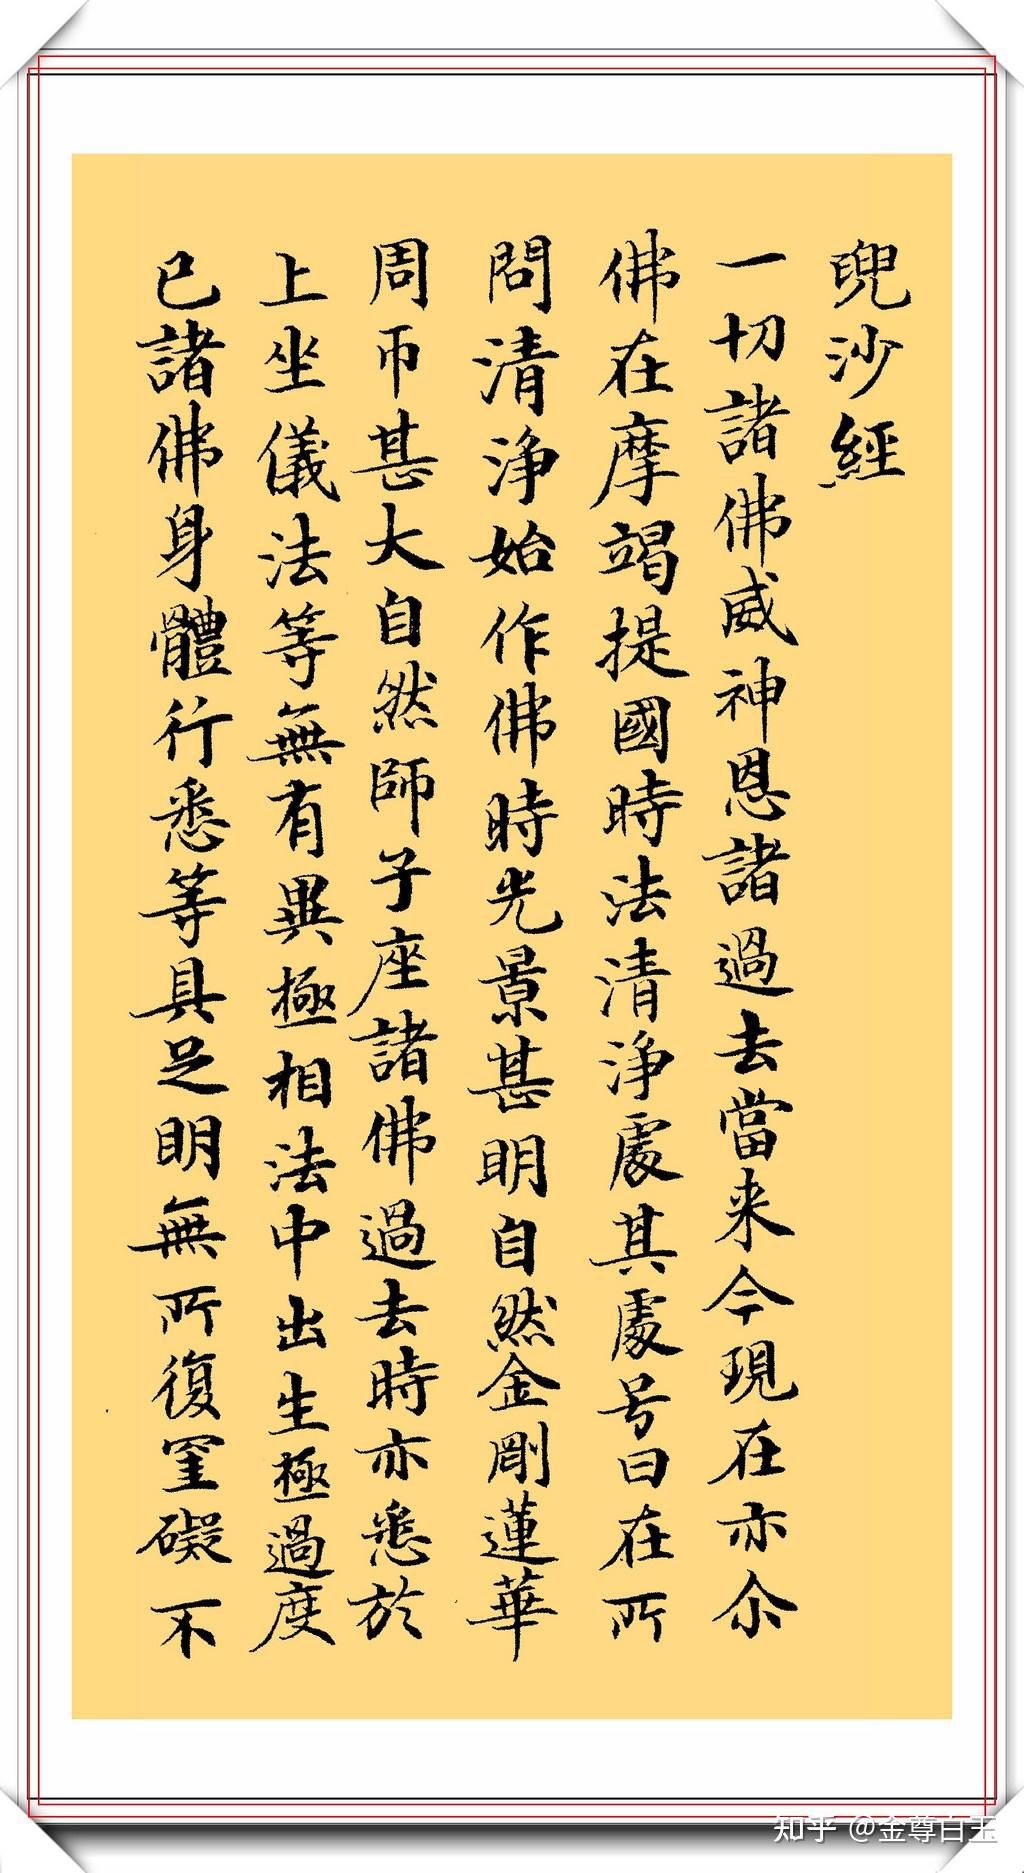 兜沙經
一切諸佛威神恩諸過去當来今現在亦尒
佛在摩竭提國時法清淨處其處号曰在所
問清淨始作佛時光景甚明自然金剛蓮華
周帀甚大自然師子座諸佛過去時亦悉於
上坐儀法等無有異極相法中出生極過度
已諸佛身體行悉等具足明無所復罣礙不
知乎 @金尊白玉